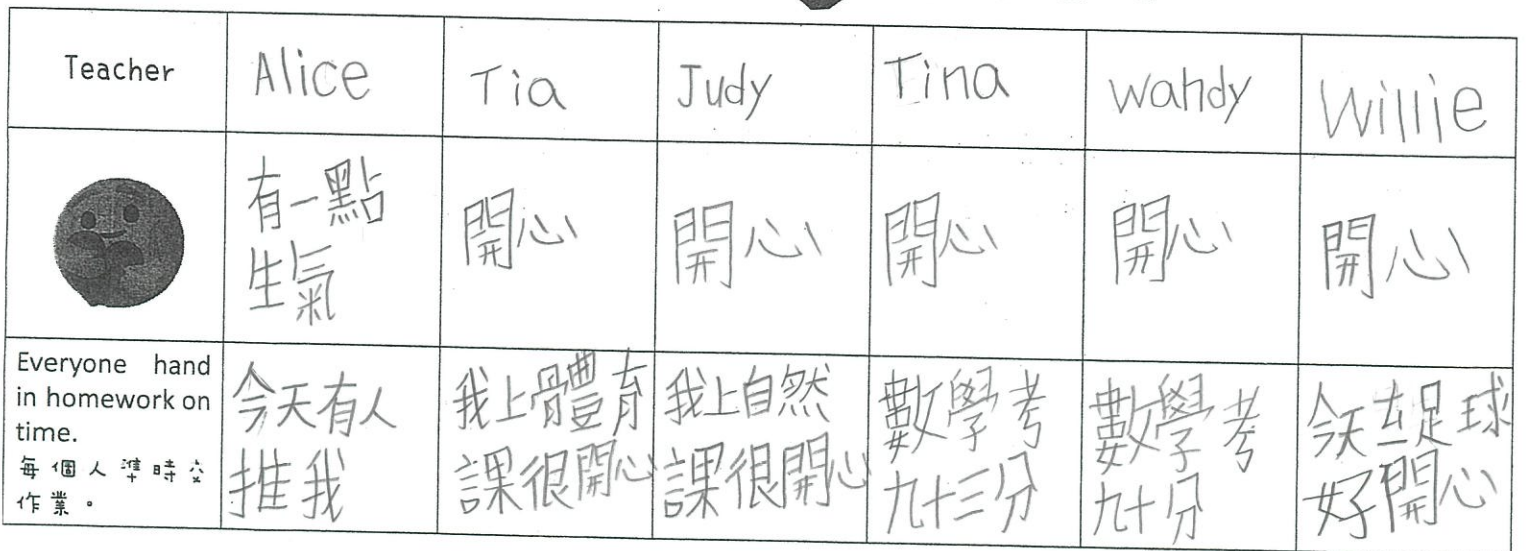 Teacher
Alice
Tia
Judy
Tina
Wandy
Willie
有一點
生氣
開心
開心
開心
開心
開心
Everyone hand
in homework on
time.
每個人準時交
作業。
今天有人
推我
我上體育
課很開心
我上自然
課很開心
數學考
九十三分
數學考
九十分
今天足球
好開心